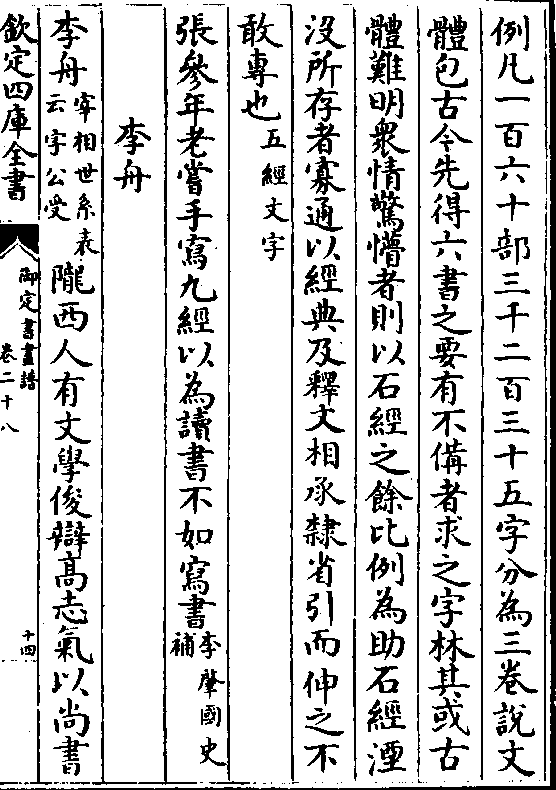 例凡一百六十部三千二百三十五字分為三卷說文
體包古今先得六書之要有不備者求之字林其或古
體難明衆情驚懵者則以石經之餘比例為助石經湮
沒所存者寡通以經典及釋文相承隸省引而伸之不
敢專也五經文字
張參年老嘗手寫九經以為讀書不如寫書李肇國史補
李舟
李舟宰相世系表云字公受隴西人有文學俊辯高志氣以尚書
欽定四庫全書
御定書畫譜
卷二十八
十四